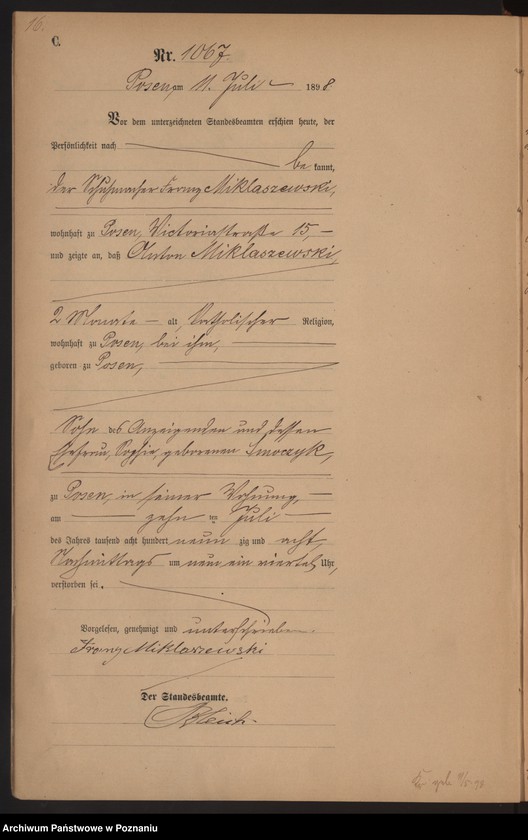 16.
C.
Nr. 1067.
Posen, am 11. Juli 1898
Vor dem unterzeichneten Standesbeamten erschien heute, der
Persönlichkeit nach
be kannt,
der Schuhmacher Franz Miklaszewski,
wohnhaft zu Posen, Victoriastraße 15,
und zeigte an, daß Anton Miklaszewski,
2 Monate alt, katholischer Religion,
wohnhaft zu Posen, bei ihm,
geboren zu Posen,
Sohn des Anzeigenden und dessen
Ehefrau, Sophie, geborenen Smoczyk,
zu Posen, in seiner Wohnung,
am zehn ten Juli
des Jahres tausend acht hundert neun zig und acht,
Nachmittags um neun ein viertel Uhr,
verstorben sei.
Vorgelesen, genehmigt und unterschrieben.
Franz Miklaszewski
Der Standesbeamte.
Archiwum Państwowe w Poznaniu